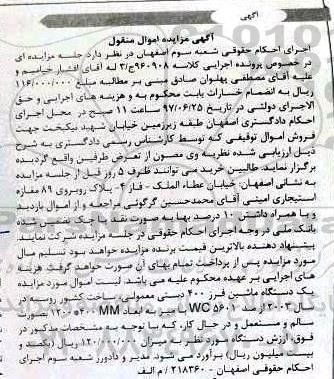 آگهی
آگهی مزایده اموال منقول
اجرای احکام حقوقی شعبه سوم اصفهان در نظر دارد جلسه مزایده ای
در خصوص پرونده اجرایی کلاسه ۹۶۰۹۰۸ج/۳ له آقای افشار خیامیم و
علیه آقای مصطفی پهلوان صادق مبنی بر مطالبه مبلغ ۱۱۶/۰۰۰/۰۰۰
ریال به انضمام خسارات بابت محکوم به و هزینه های اجرایی و حق
الاجرای دولتی در تاریخ ۹۷/۰۶/۲۵ ساعت ۱۱ صبح در محل اجرای
احکام دادگستری اصفهان طبقه زیرزمین خیابان شهید نیکبخت جهت
فروش اموال توقیفی که توسط کارشناس رسمی دادگستری به شرح
ذیل ارزیابی شده نظریه وی مصون از تعرض طرفین واقع گردیده
برگزار نماید. طالبین خرید می توانند ظرف ۵ روز قبل از جلسه مزایده
به نشانی اصفهان: خیابان عطاء الملک - فاز ۴- پلاک روبروی ۸۹ مغازه
استیجاری امینی آقای محمدحسین گرگوئی مراجعه و از اموال بازدید
و با همراه داشتن ۱۰ درصد بها به صورت نقد یا چک تضمین شده
بانک ملی در وجه اجرای احکام حقوقی در جلسه مزایده شرکت نمایند.
پیشنهاد دهنده بالاترین قیمت برنده مزایده خواهد بود تسلیم مال
مورد مزایده پس از پرداخت تمام بهای آن صورت خواهد گرفت. هزینه
های اجرایی بر عهده محکوم علیه می باشد. لیست اموال مورد مزایده
یک دستگاه ماشین فرز ۴۰۰ دستی معمولی ساخت کشور روسیه در
سال ۲۰۰۳ از مد WC ۵۶۰۰ با میز به ابعاد MM ۴۰۰*۱۲۰۰ بصورت
سالم و مستعمل و در حال کار، که با توجه به مشخصات مذکور در
فوق، ارزش دستگاه مورد نظر به میزان ۱۲۰/۰۰۰/۰۰۰ ریال (یکصد و
بیست میلیون ریال) برآورد می شود. مدیر و دادورز شعبه سوم اجرای
احکام حقوقی اصفهان - ۲۱۸۳۶۰ / م الف